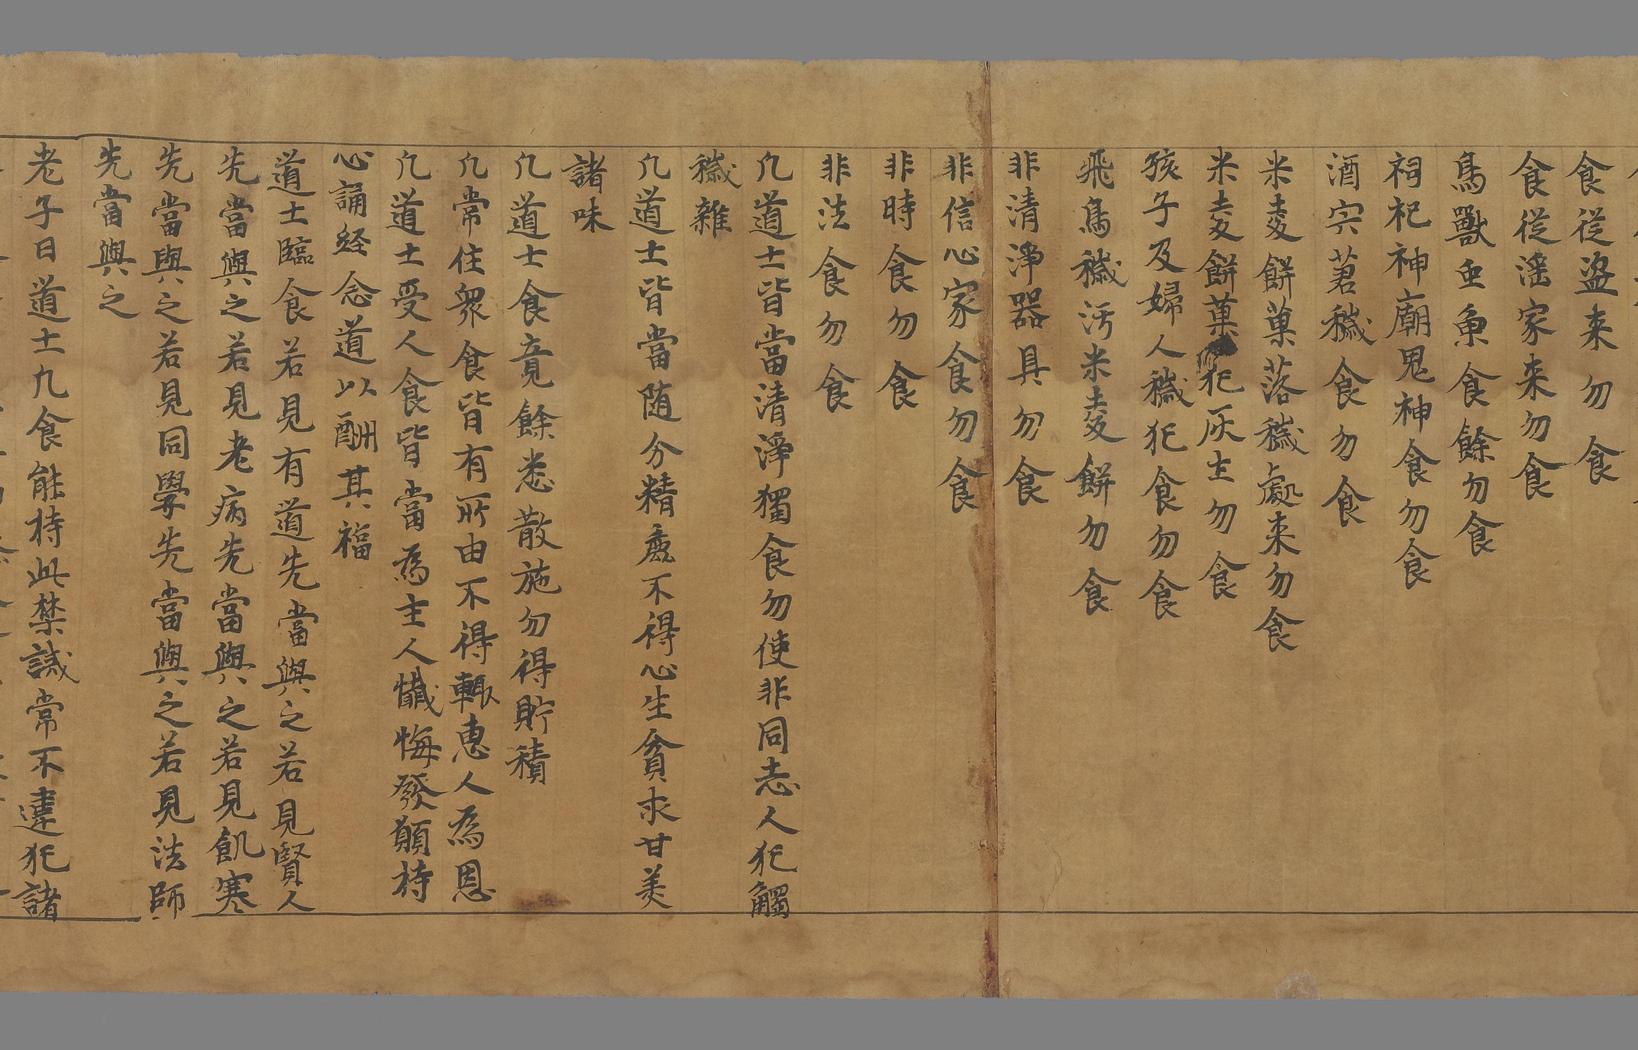 食從盜来勿食
食從滛家来勿食
鳥獸虫魚食餘勿食
祠祀神廟鬼神食勿食
酒宍荤穢食勿食
米麦餅菓落穢處来勿食
米麦餅菓犯灰土勿食
孩子及婦人穢犯食勿食
飛鳥穢污米麦餅勿食
非清淨器具勿食
非信心家食勿食
非時食勿食
非法食勿食
凡道士皆當清淨獨食勿使非同志人犯觸
穢雜
凡道士皆當随分精麁不得心生貧求甘美
諸味
凡道士食竟餘悉散施勿得貯積
凡常住衆食皆有所由不得輙惠人為恩
凡道士受人食皆當為主人懴悔發願持
心誦経念道以酬其福
道士臨食若見有道先當與之若見賢人
先當與之若見老病先當與之若見飢寒
先當與之若見同學先當與之若見法師
先當與之
老子曰道士凡食能持此禁誡常不違犯諸